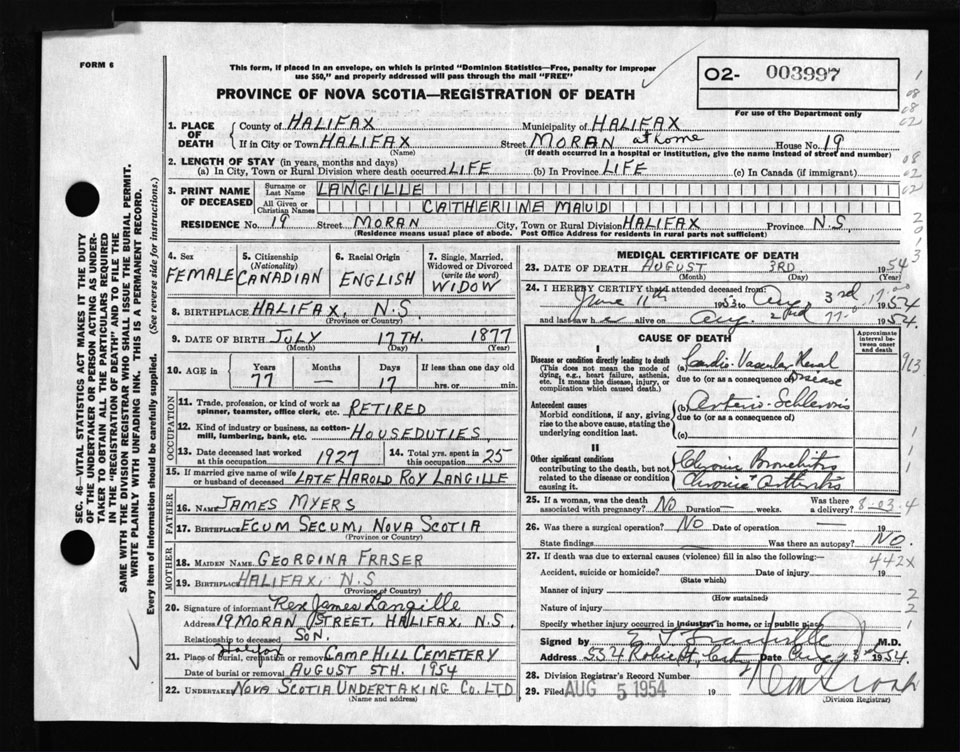 FORM 6
This form, if placed in an envelope, on which is printed "Dominion Statistics—Free, penalty for improper
use $50," and properly addressed will pass through the mail "FREE"
PROVINCE OF NOVA SCOTIA—REGISTRATION OF DEATH
O2- 003997
For use of the Department only
1. PLACE OF DEATH
County of HALIFAX Municipality of HALIFAX
If in City or Town HALIFAX Street MORAN at home House No. 19
(Name) (If death occurred in a hospital or institution, give the name instead of street and number)
2. LENGTH OF STAY (in years, months and days)
(a) In City, Town or Rural Division where death occurred LIFE (b) In Province LIFE (c) In Canada (if immigrant)
3. PRINT NAME OF DECEASED
Surname or Last Name LANGILLE
All Given or Christian Names CATHERIINE MAUD
RESIDENCE No. 19 Street MORAN City, Town or Rural Division HALIFAX Province N.S.
(Residence means usual place of abode. Post Office Address for residents in rural parts not sufficient)
4. Sex
FEMALE
5. Citizenship
(Nationality)
CANADIAN
6. Racial Origin
ENGLISH
7. Single, Married,
Widowed or Divorced
(write the word)
WIDOW
8. BIRTHPLACE HALIFAX, N.S.
(Province or Country)
9. DATE OF BIRTH JULY 17TH. 1877
(Month) (Day) (Year)
10. AGE in Years Months Days If less than one day old
77 — 17 hrs. or min.
OCCUPATION
11. Trade, profession, or kind of work as
spinner, teamster, office clerk, etc. RETIRED
12. Kind of industry or business, as cotton-
mill, lumbering, bank, etc. HOUSEDUTIES,
13. Date deceased last worked
at this occupation 1927
14. Total yrs. spent in
this occupation 25
15. If married give name of wife
or husband of deceased LATE HAROLD ROY LANGILLE
FATHER
16. Name JAMES MYERS
17. Birthplace ECUM SECUM, NOVA SCOTIA
(Province or Country)
MOTHER
18. MAIDEN NAME GEORGINA FRASER
19. BIRTHPLACE HALIFAX, N.S
(Province or Country)
20. Signature of informant Rex James Langille
Address 19 MORAN STREET, HALIFAX, N.S.
Relationship to deceased SON.
21. Place of burial, cremation or removal Halifax CAMP HILL CEMETERY
Date of burial or removal AUGUST 5TH. 1954
22. UNDERTAKER NOVA SCOTIA UNDERTAKING CO. LTD
(Name and address)
MEDICAL CERTIFICATE OF DEATH
23. DATE OF DEATH AUGUST 3RD 1954
(Month) (Day) (Year)
24. I HEREBY CERTIFY that I attended deceased from:
June 11th 1953 to Aug 3rd 1954
and last saw her alive on Aug. 2nd 1954.
CAUSE OF DEATH
Approximate interval between onset and death
I
Disease or condition directly leading to death
(This does not mean the mode of
dying, e.g., heart failure, asthenia,
etc. It means the disease, injury, or
complication which caused death.)
(a) Cardio-Vascular Renal
due to (or as a consequence of) Disease
Antecedent causes
Morbid conditions, if any, giving
rise to the above cause, stating the
underlying condition last.
(b) Arterio-Sclerosis
due to (or as a consequence of)
(c)
II
Other significant conditions
contributing to the death, but not
related to the disease or condition
causing it.
Chronic Bronchitis
Chronic Arthritis
25. If a woman, was the death
associated with pregnancy? NO Duration — weeks. Was there
a delivery?
26. Was there a surgical operation? NO Date of operation — 19
State findings Was there an autopsy? NO.
27. If death was due to external causes (violence) fill in also the following:—
442X
Accident, suicide or homicide? Date of injury 19
(State which)
Manner of injury
(How sustained)
Nature of injury
Specify whether injury occurred in industry, in home, or in public place
Signed by M.D.
Address 554 Robie St, City Date Aug 3rd 1954.
28. Division Registrar's Record Number
29. Filed AUG 5 1954 19
(Division Registrar)
SEC. 46—VITAL STATISTICS ACT MAKES IT THE DUTY
OF THE UNDERTAKER OR PERSON ACTING AS UNDER-
TAKER TO OBTAIN ALL THE PARTICULARS REQUIRED
IN THE "REGISTRATION OF DEATH" AND TO FILE THE
SAME WITH THE DIVISION REGISTRAR WHO SHALL ISSUE THE BURIAL PERMIT.
WRITE PLAINLY WITH UNFADING INK. THIS IS A PERMANENT RECORD.
Every item of information should be carefully supplied. (See reverse side for instructions.)